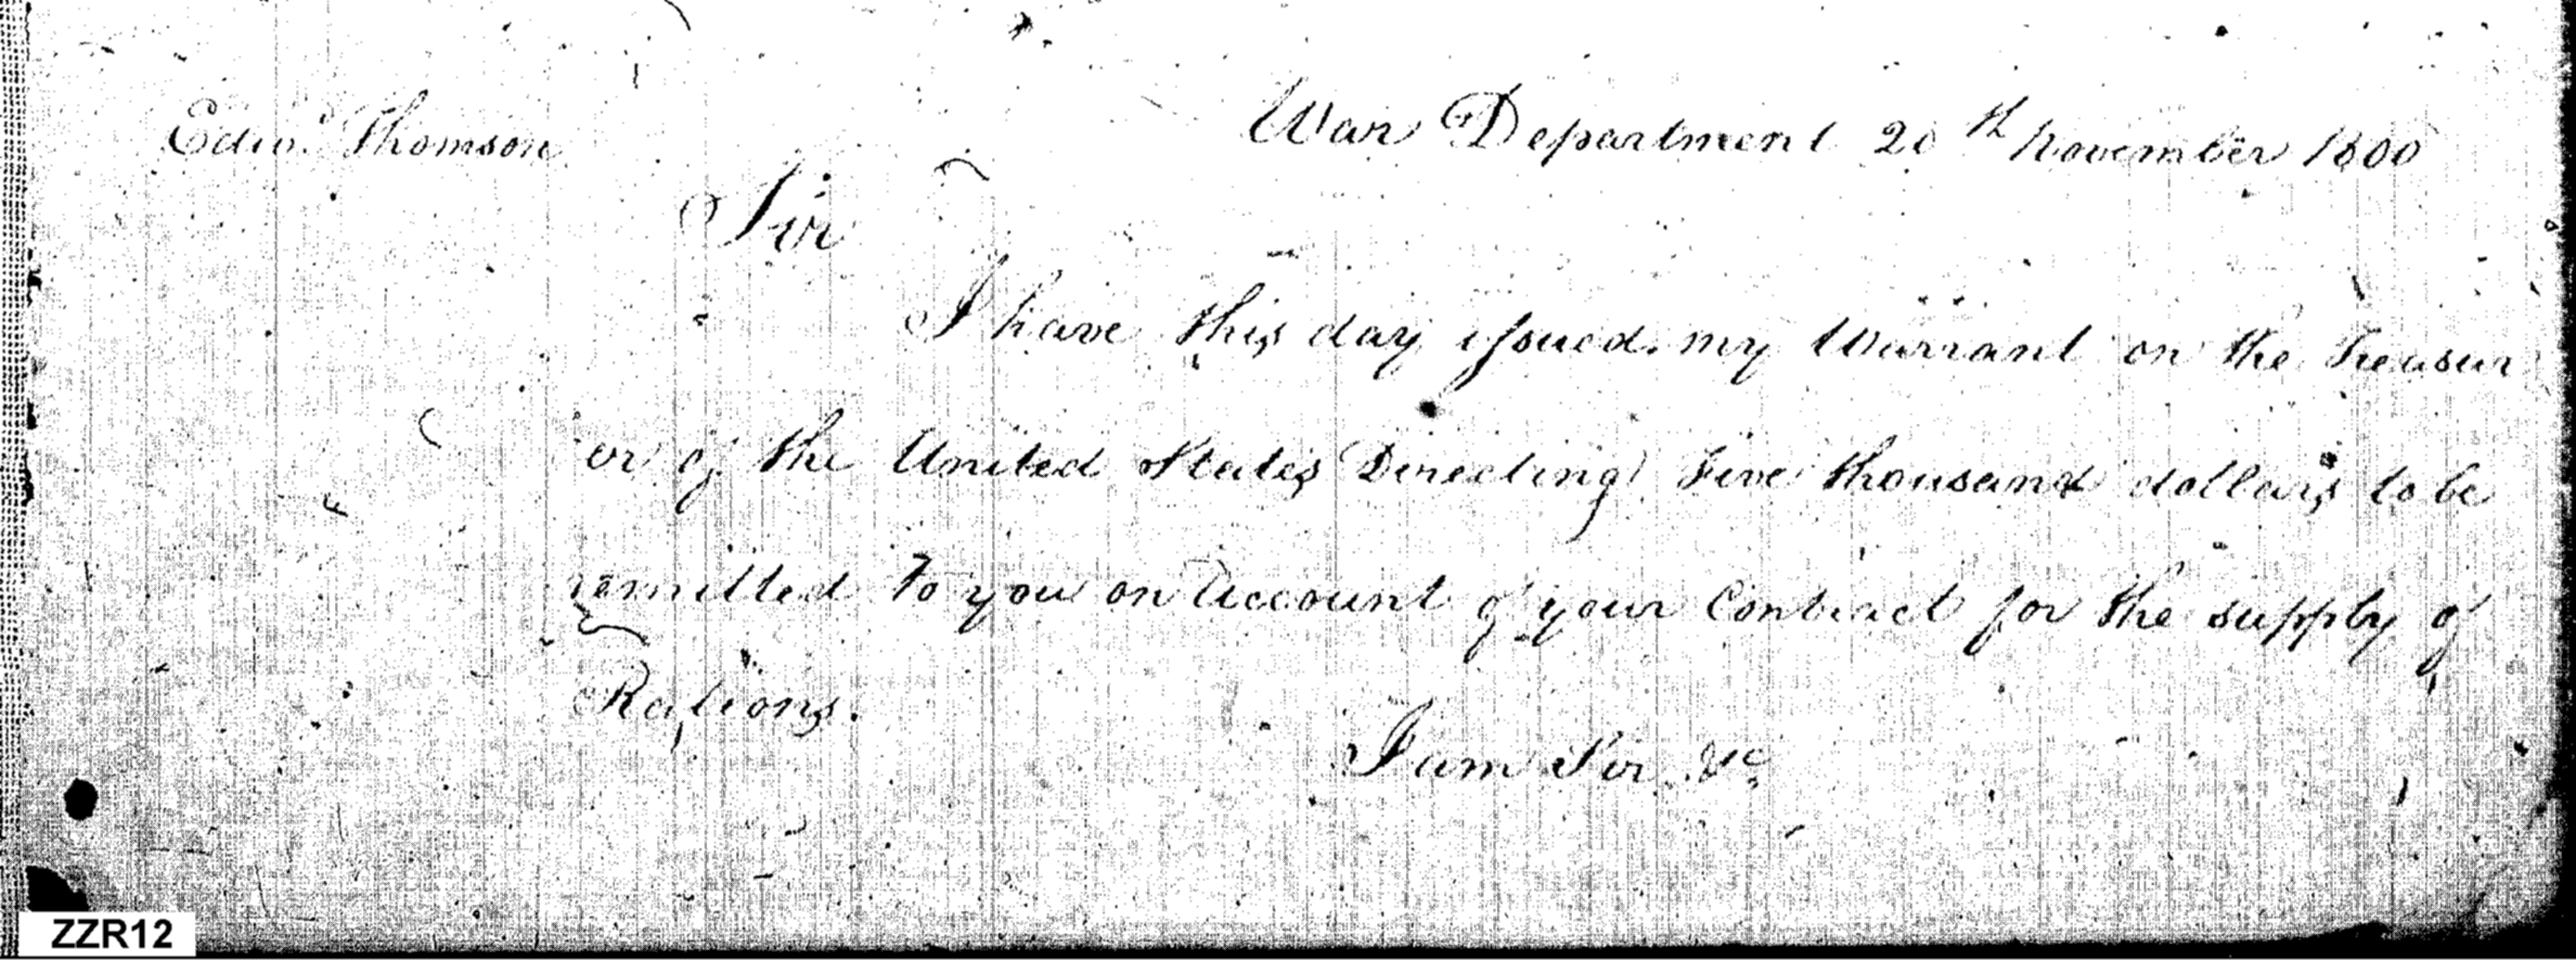 War Department 20th November 1800
Edwd. Thomson
Sir
I have this day issued my Warrant on the Treasur
er of the United States Directing Five thousand dollars to be
remitted to you on Account of your Contract for the supply of
Rations.
I am Sir &c.
ZZR12